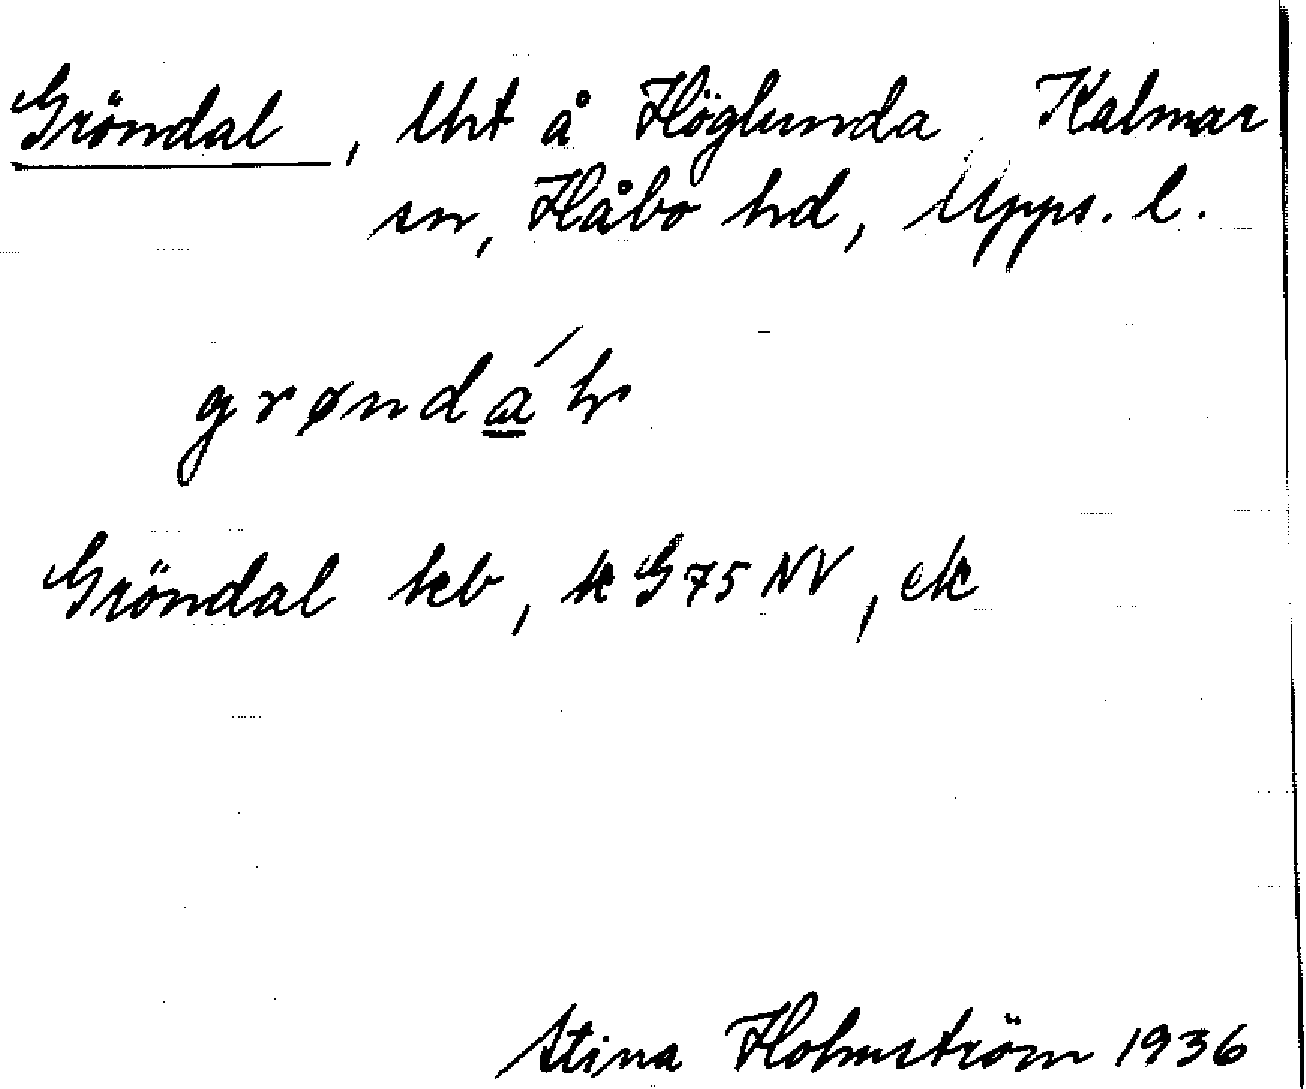 Gröndal, lht å Höglunda Kalmar
sn, Håbo hd, Upps. l.
grøndá
Gröndal kb, k G 75 NV, ek
Stina Holmström 1936